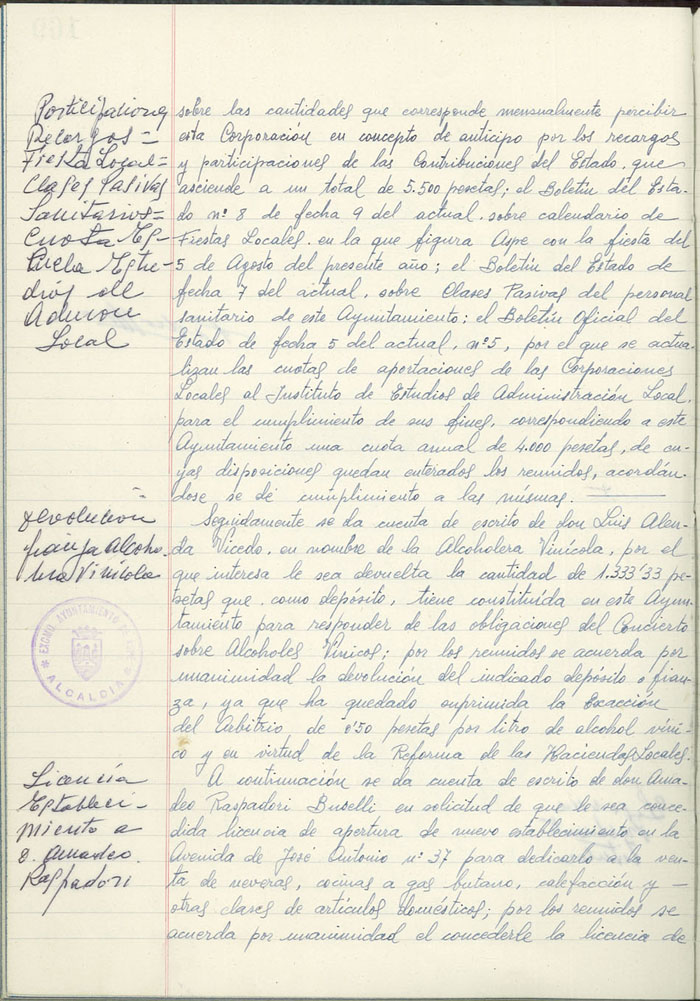 Participaciones
Recargos=
Fiesta Local=
Clases Pasivas
Sanitarios=
Cuota Es-
cuela Estu-
dios de
Admon
Local
sobre las cantidades que corresponde mensualmente percibir
esta Corporación en concepto de anticipo por los recargos
y participaciones de las Contribuciones del Estado, que
asciende a un total de 5.500 pesetas; el Boletín del Esta-
do nº 8 de fecha 9 del actual, sobre calendario de
Fiestas Locales, en la que figura Aspe con la fiesta del
5 de Agosto del presente año; el Boletín del Estado de
fecha 7 del actual, sobre Clases Pasivas del personal
sanitario de este Ayuntamiento; el Boletín Oficial del
Estado de fecha 5 del actual, nº 5, por el que se actua-
lizan las cuotas de aportaciones de las Corporaciones
Locales al Instituto de Estudios de Administración Local,
para el cumplimiento de sus fines, correspondiendo a este
Ayuntamiento una cuota anual de 4.000 pesetas, de cu-
yas disposiciones quedan enterados los reunidos, acordán-
dose se dé cumplimiento a las mismas.
devolución
fianza Alcoho-
lera Vinícola
Seguidamente se da cuenta de escrito de don Luis Alen-
da Vicedo, en nombre de la Alcoholera Vinícola, por el
que interesa le sea devuelta la cantidad de 1.333'33 pe-
setas que, como depósito, tiene constituída en este Ayun-
tamiento para responder de las obligaciones del Concierto
sobre Alcoholes Vínicos; por los reunidos se acuerda por
unanimidad la devolución del indicado depósito o fian-
za, ya que ha quedado suprimida la Exacción
del Arbitrio de 0'50 pesetas por litro de alcohol víni-
co y en virtud de la Reforma de las Haciendas Locales.
EXCMO. AYUNTAMIENTO DE
ALCALDIA
Licencia
Estableci-
miento a
D. Amadeo
Raspadori
A continuación se da cuenta de escrito de don Ama-
deo Raspadori Buselli en solicitud de que le sea conce-
dida licencia de apertura de nuevo establecimiento en la
Avenida de José Antonio nº 37 para dedicarlo a la ven-
ta de neveras, cocinas a gas butano, calefacción y —
otras clases de artículos domésticos; por los reunidos se
acuerda por unanimidad el concederle la licencia de